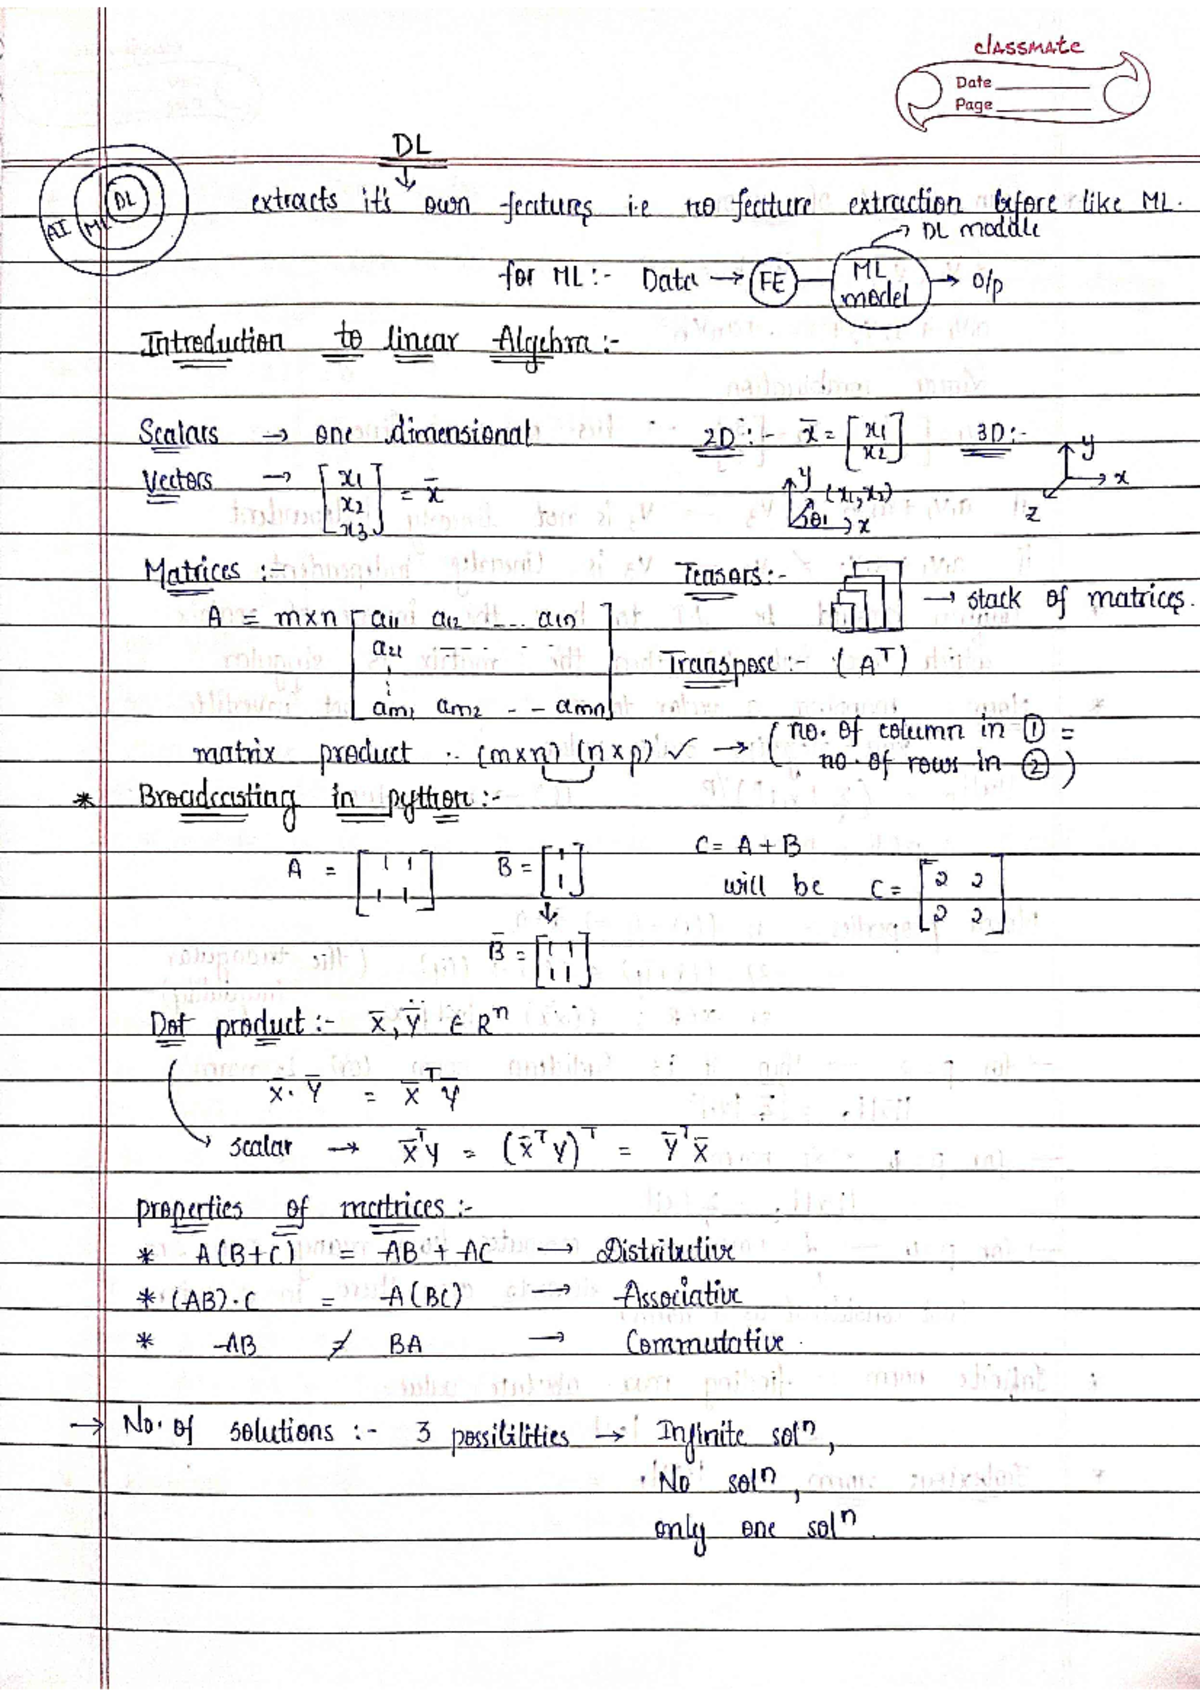 classmate
Date
Page
DL
AI ML DL
extracts it's own features i.e no feature extraction before like ML.
→ DL module
for ML:- Data → FE — ML model → o/p
Introduction to linear Algebra:-
Scalars → one dimensional 2D:- x̄ = [x1 x2] 3D:- y x z
Vectors → [x1 x2 x3] = x̄ y (x1,x2) θ1 x
Matrices :- Tensors:- → stack of matrices.
A = m×n [a11 a12 ... a1n
a21 — — - - -
Transpose:- (Aᵀ)
am1 am2 - - amn]
matrix product :- (m×n) (n×p) ✓ → (no. of column in ① =
no. of rows in ②)
* Broadcasting in python:-
Ā = [1 1 1 1] B̄ = [1 1] C = A + B
will be C = [2 2 2 2]
↓
B̄ = [1 1 1 1]
Dot product:- x̄, ȳ ∈ Rⁿ
x̄ . ȳ = x̄ᵀȳ
scalar → x̄ᵀy = (x̄ᵀy)ᵀ = ȳᵀx̄
properties of matrices:-
* A(B+C) = AB + AC → Distributive
* (AB).C = A(BC) → Associative
* AB ≠ BA → Commutative.
→ No. of solutions :- 3 possibilities → Infinite solⁿ,
No solⁿ,
only one solⁿ.